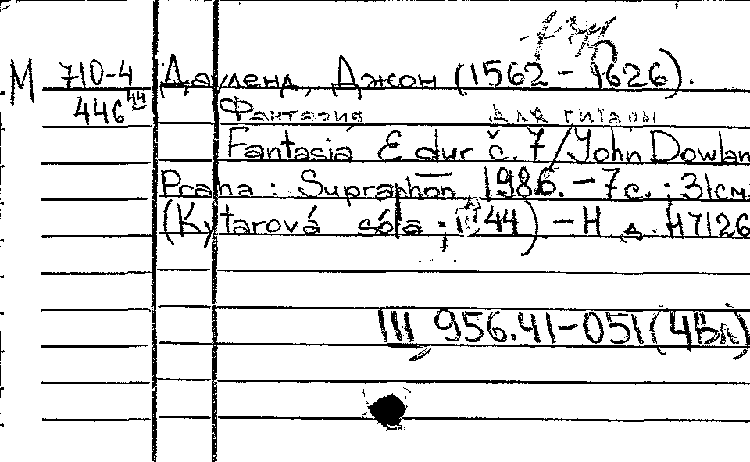 М 710-4 Дауленд, Джон (1562 - 1626).
446
Фантазия для гитары
Fantasia E dur č. 7 / John Dowlan
Praha : Supraphon, 1986. - 7 с. ; 31 см
(Kytarová sóla ; 44) - Н. д. H7126
III 956.41-051 (4Вл)